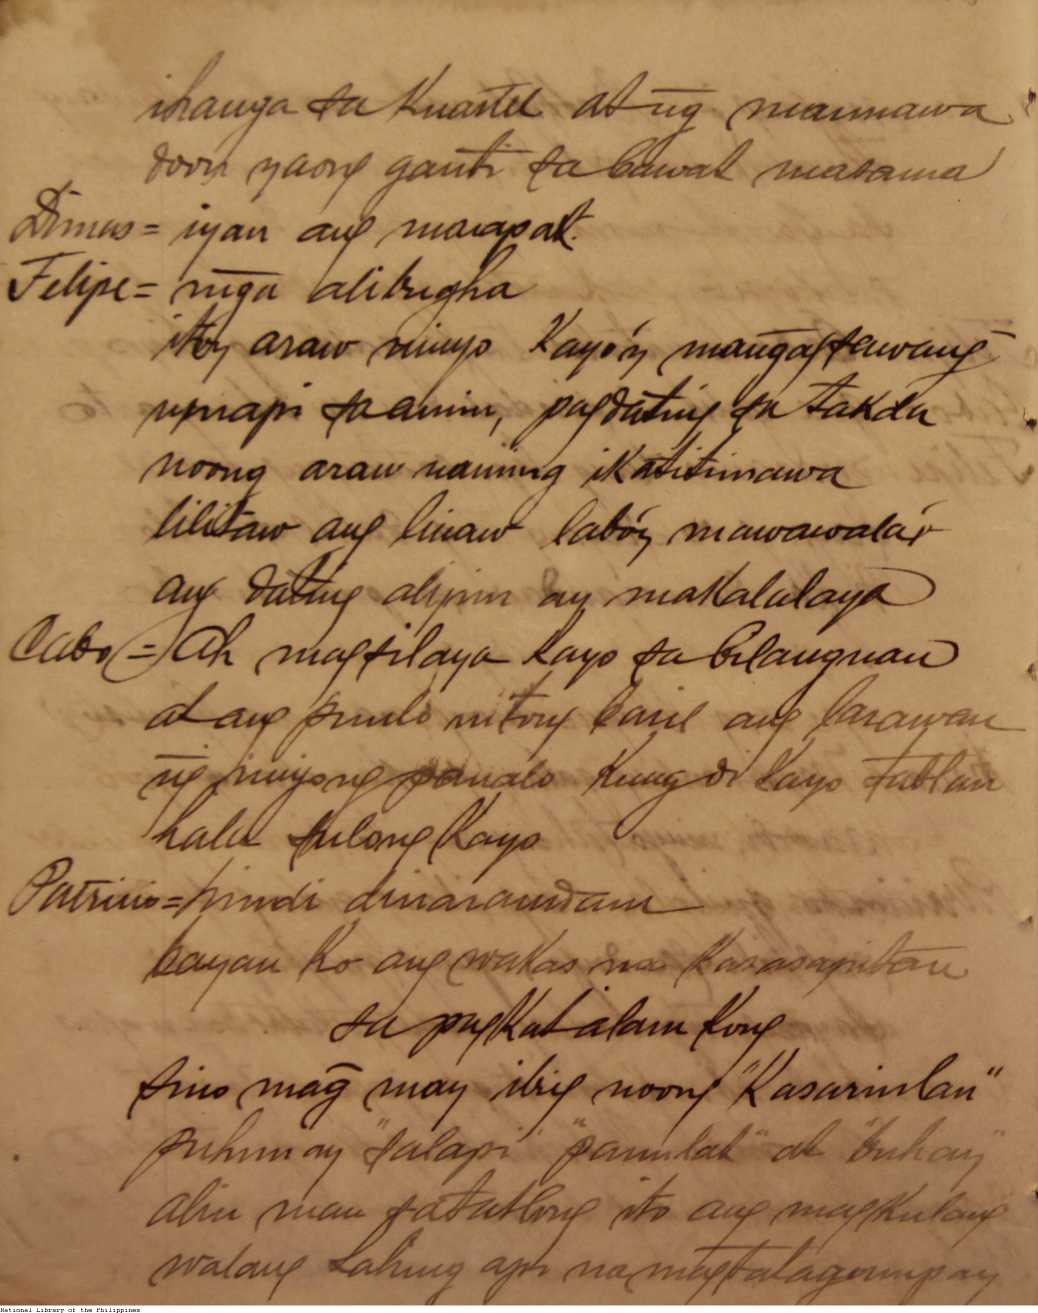 ihanga sa Kuartel at ng mannawa
doon yaong ganti sa bawat masama
Dimas = iyan ang marapat.
Felipe = mga alibugha
itoy araw ninyo Kayó'y mangagsawang
umapi sa amin, pagdating sa takda
noong araw naming ikatitimawa
lilitaw ang linaw labóy mawawalá't
ang dating alipin ay makalalaya
Cabo = Ah magsilaya kayo sa bilanguan
at ang punlo nitong baril ang larawan
ng inyong panalo kung di kayo tablan
hala sulong Kayo
Patricio = hindi dinaramdam
bayan ko ang wakas na kasasapitan
sa pagkat alam kong
sino mag may ibig noong "Kasarinlan"
puhunay "salapi" "panulat" at "buhay"
alin man sa tatlong ito ang magkulang
walang lahing api na magtatagumpay
National Library of the Philippines